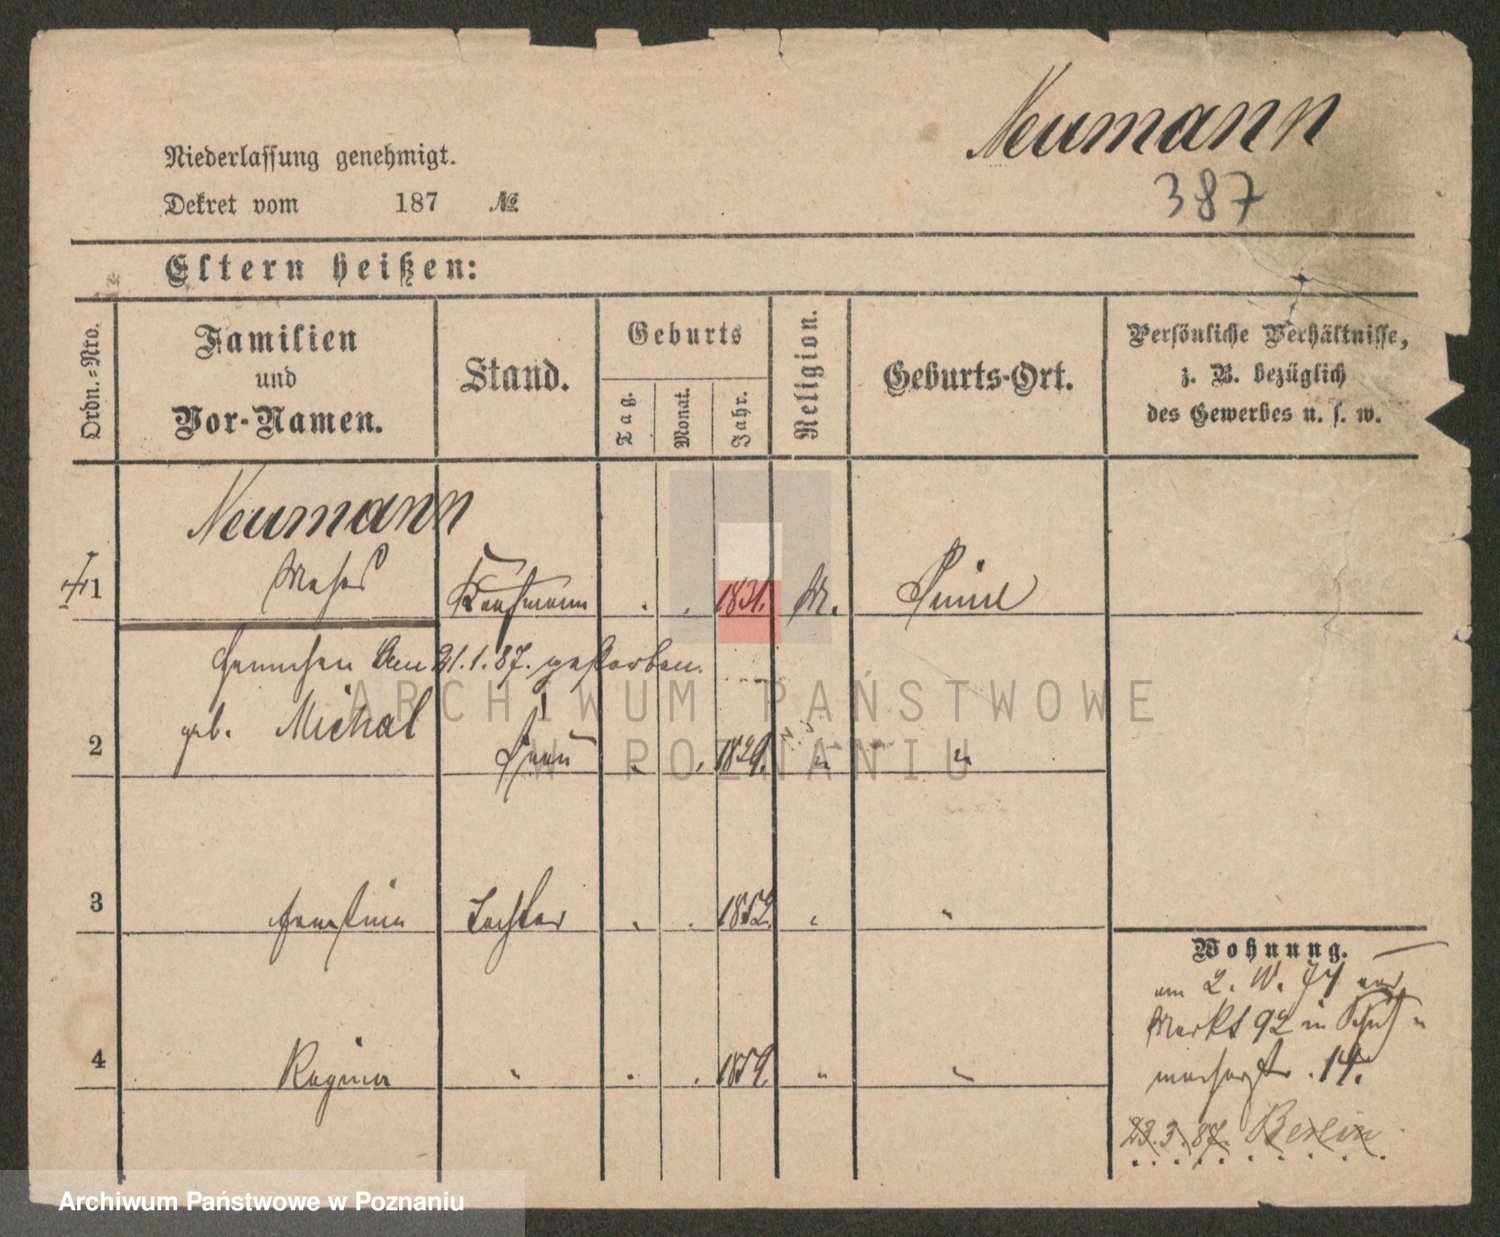 Neumann
387
Niederlassung genehmigt.
Dekret vom 187 №
Eltern heißen:
Ordn.-Nro.
Familien
und
Vor-Namen.
Stand.
Geburts
Tag.
Monat.
Jahr.
Religion.
Geburts-Ort.
Persönliche Verhältnisse,
z. B. bezüglich
des Gewerbes u. s. w.
Neumann
1 Kaufmann 1831. M.
am 21.1.87. gestorben.
geb. Michal
2 Frau 1829. " "
3 Ernstine Tochter 1852. " "
4 Regina " 1859. " "
Wohnung.
am 2. IV. 74 von
Markt 92 in Schuh-
macherstr. 14.
23.3.87. Berlin
ARCHIWUM PAŃSTWOWE
W POZNANIU
Archiwum Państwowe w Poznaniu